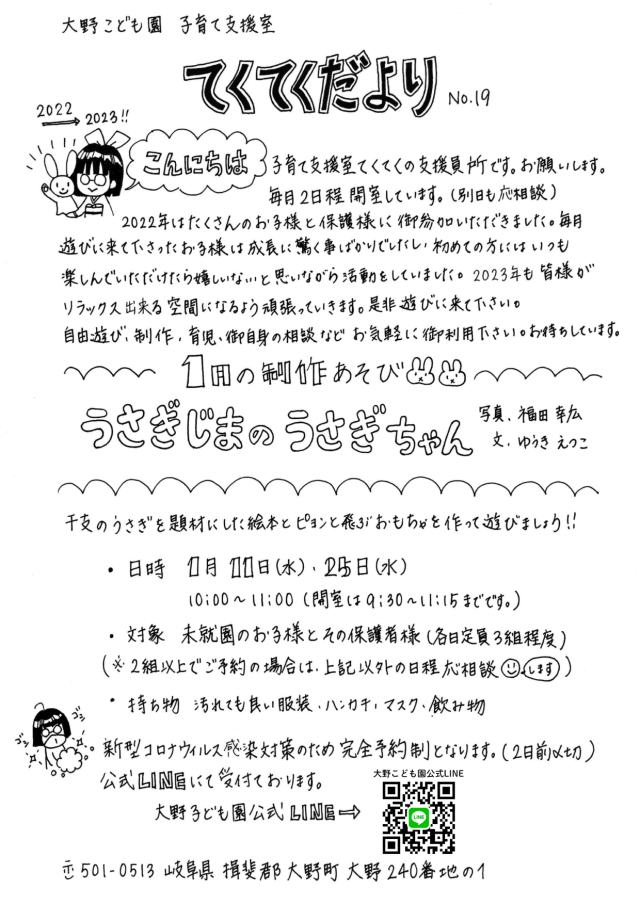 大野こども園 子育て支援室
てくてくだより No.19
2022 → 2023!!
こんにちは 子育て支援室てくてくの支援員所です。お願いします。
毎月2日程開室しています。(別日も応相談)
2022年はたくさんのお子様と保護様に御参加いただきました。毎月
遊びに来て下さったお子様は成長に驚く事ばかりでしたし、初めての方にはいつも
楽しんでいただけたら嬉しいな、と思いながら活動をしていました。2023年も皆様が
リラックス出来る空間になるよう頑張っていきます。是非遊びに来て下さい。
自由遊び、制作、育児、御自身の相談など お気軽に御利用下さい。お待ちしています。
1月の制作あそび
うさぎじまの うさぎちゃん
写真、福田幸広
文、ゆうき えつこ
干支のうさぎを題材にした絵本とピョンと飛ぶおもちゃを作って遊びましょう!!
・日時 1月11日(水)、25日(水)
10:00〜11:00 (開室は9:30〜11:15までです。)
・対象 未就園のお子様とその保護者様 (各日定員3組程度)
(※2組以上でご予約の場合は、上記以外の日程応相談します)
・持ち物 汚れても良い服装、ハンカチ、マスク、飲み物
ゴシ ゴシ
新型コロナウィルス感染対策のため完全予約制となります。(2日前〆切)
公式LINEにて受付ております。
大野こども園公式LINE
大野こども園公式LINE→
LINE
〒501-0513 岐阜県 揖斐郡 大野町 大野240番地の1